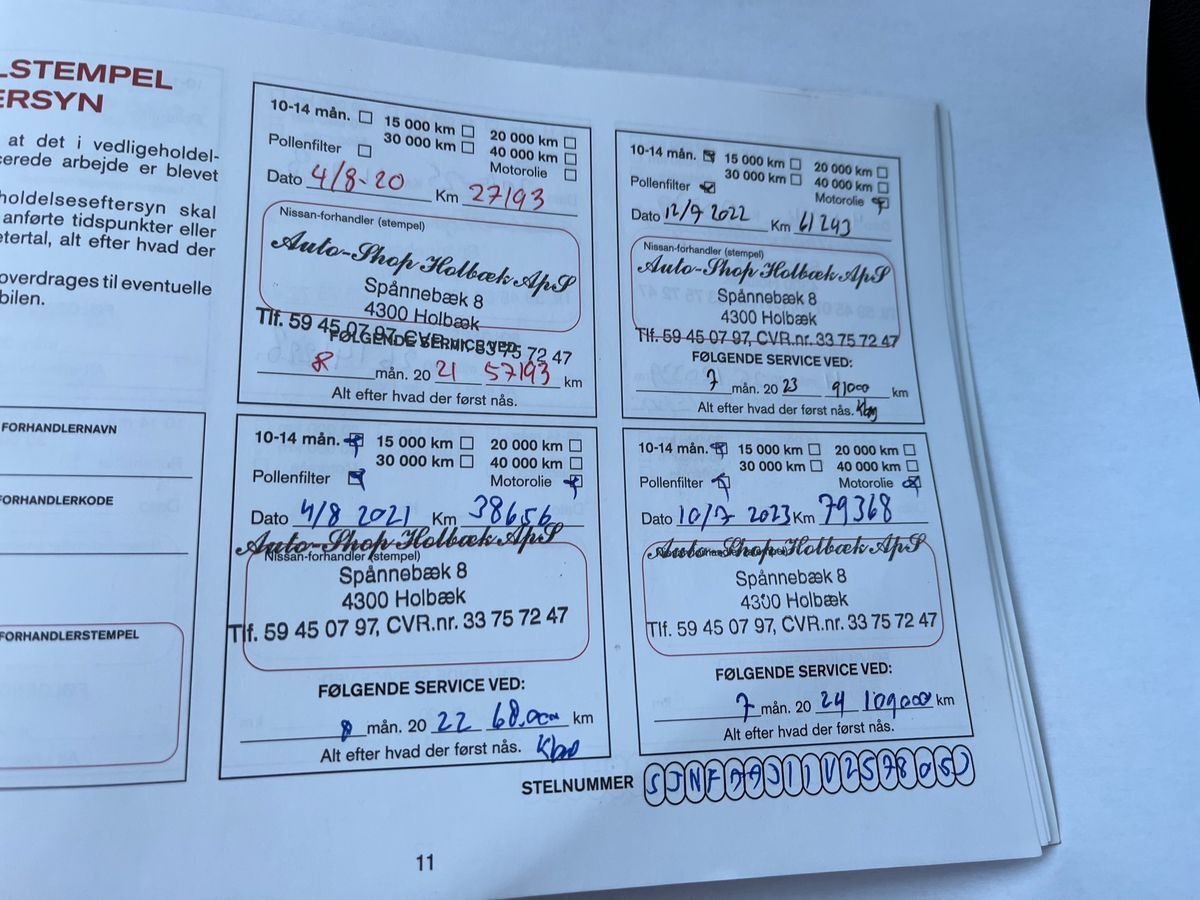 LSTEMPEL
ERSYN
at det i vedligeholdel-
cerede arbejde er blevet
holdelseseftersyn skal
anførte tidspunkter eller
etertal, alt efter hvad der
overdrages til eventuelle
bilen.
FORHANDLERNAVN
FORHANDLERKODE
FORHANDLERSTEMPEL
10-14 mån. 15 000 km 20 000 km
30 000 km 40 000 km
Pollenfilter Motorolie
Dato 4/8-20 Km 27193
Nissan-forhandler (stempel)
Auto-Shop Holbæk ApS
Spånnebæk 8
4300 Holbæk
Tlf. 59 45 07 97, CVR.nr. 33 75 72 47
FØLGENDE SERVICE VED:
8 mån. 20 21 57193 km
Alt efter hvad der først nås.
10-14 mån. 15 000 km 20 000 km
30 000 km 40 000 km
Pollenfilter Motorolie
Dato 12/7 2022 Km 61243
Nissan-forhandler (stempel)
Auto-Shop Holbæk ApS
Spånnebæk 8
4300 Holbæk
Tlf. 59 45 07 97, CVR.nr. 33 75 72 47
FØLGENDE SERVICE VED:
7 mån. 20 23 91000 km
Alt efter hvad der først nås.
10-14 mån. 15 000 km 20 000 km
30 000 km 40 000 km
Pollenfilter Motorolie
Dato 4/8 2021 Km 38656
Auto-Shop Holbæk ApS
Nissan-forhandler (stempel)
Spånnebæk 8
4300 Holbæk
Tlf. 59 45 07 97, CVR.nr. 33 75 72 47
FØLGENDE SERVICE VED:
8 mån. 20 22 68.000 km
Alt efter hvad der først nås.
10-14 mån. 15 000 km 20 000 km
30 000 km 40 000 km
Pollenfilter Motorolie
Dato 10/7 2023 Km 79368
Auto-Shop Holbæk ApS
Nissan-forhandler (stempel)
Spånnebæk 8
4300 Holbæk
Tlf. 59 45 07 97, CVR.nr. 33 75 72 47
FØLGENDE SERVICE VED:
7 mån. 20 24 109000 km
Alt efter hvad der først nås.
STELNUMMER
11